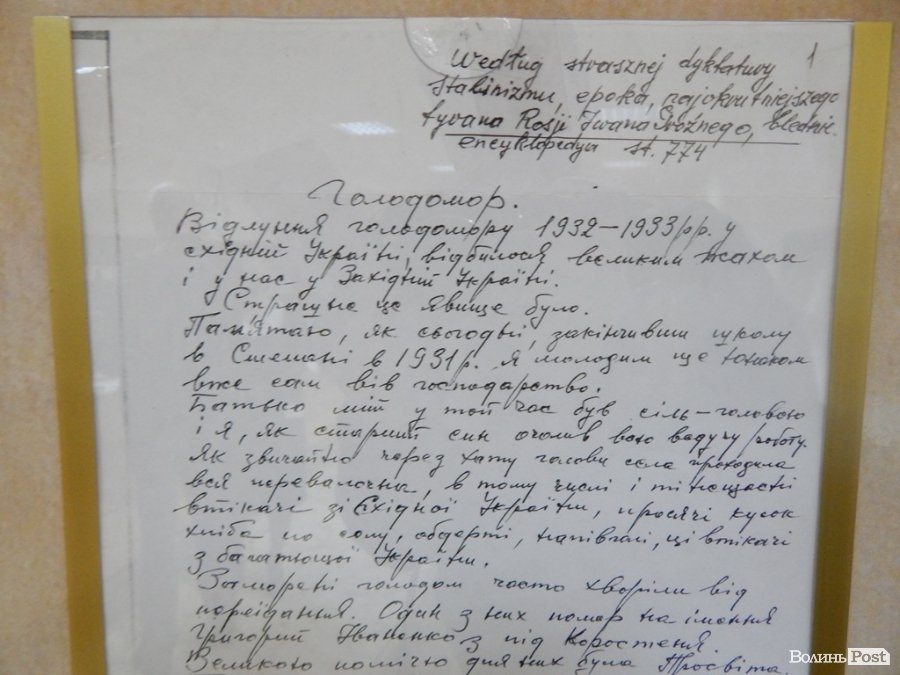 1
Według strasznej dyktatury
stalinizmu, epoka najokrutniejszego
tyrana Rosji Iwana Groźnego,
encyklopedya st. 774
Голодомор.
Відлуння голодомору 1932–1933 рр. у
східній Україні, відбилося великим жахом
і у нас у Західній Україні.
Страшне це явище було.
Пам'ятаю, як сьогодні, закінчивши школу
в 1931 р. я молодим ще юнаком
вже сам вів господарство.
Батько мій у той час був сіль-головою
і я, як старший син очолив всю ведучу роботу.
Як звичайно через хату голови села проходила
вся, в тому числі і ті нещасні
втікачі зі Східної України, просячі кусок
хліба по селу, обдерті, напівголі, ці втікачі
з багатющої України.
Заморені голодом часто хворіли від
переїдання. Один з них помер на імення
Григорий Іваненко з під Коростеня.
Великою поміччю для них була Просвіта,
ВолиньPost